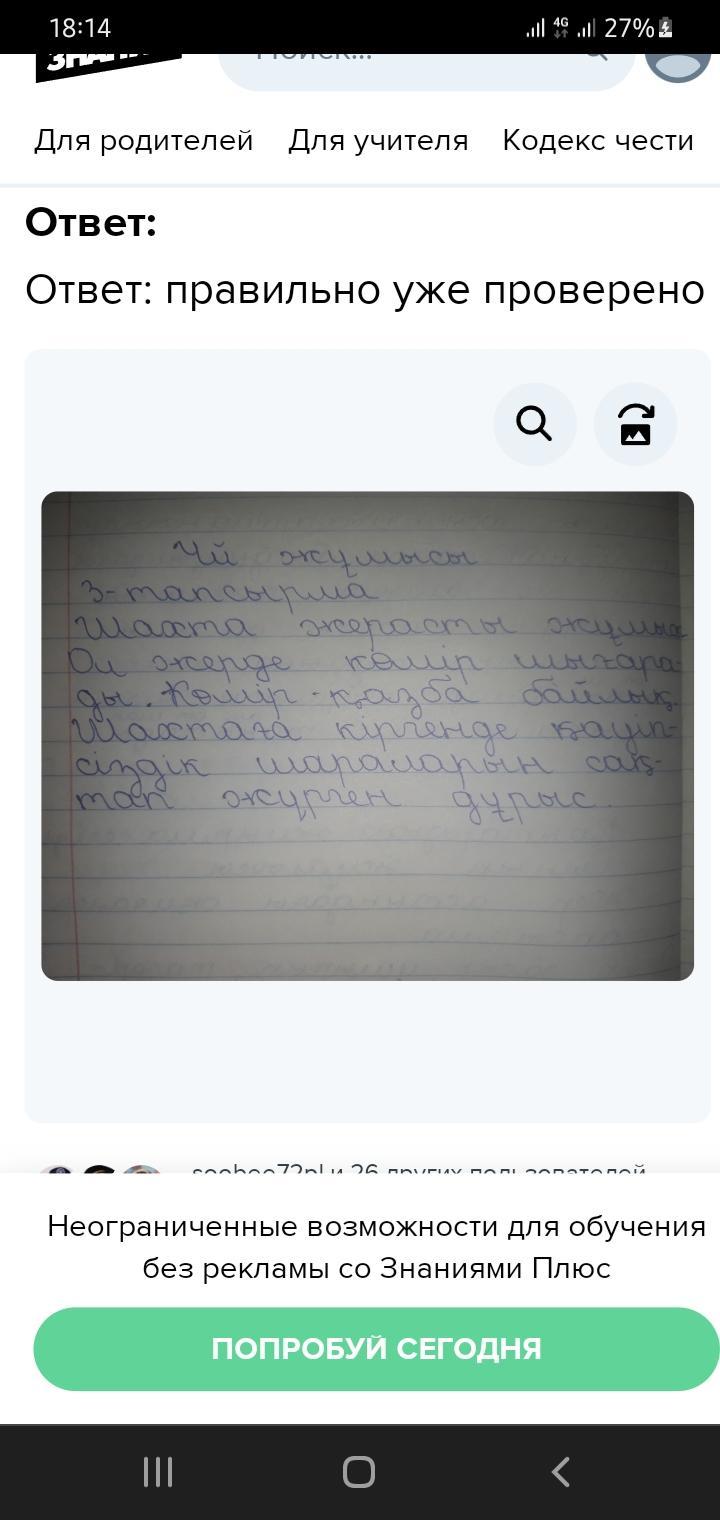 18:14
4G
27%
Для родителей Для учителя Кодекс чести
Ответ:
Ответ: правильно уже проверено
Үй жұмысы
3-тапсырма
Шахта жерасты жұмыс
Ол жерде көмір шығара-
ды. Көмір - қазба байлық.
Шахтаға кіргенде қауіп-
сіздік шараларын сақ-
тап жүрген дұрыс.
и 26 других пользователей
Неограниченные возможности для обучения
без рекламы со Знаниями Плюс
ПОПРОБУЙ СЕГОДНЯ